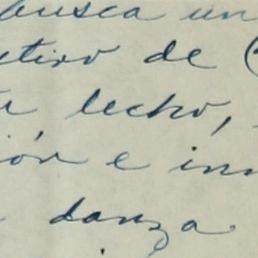 busca un
de (
lecho,
ión e in
danza